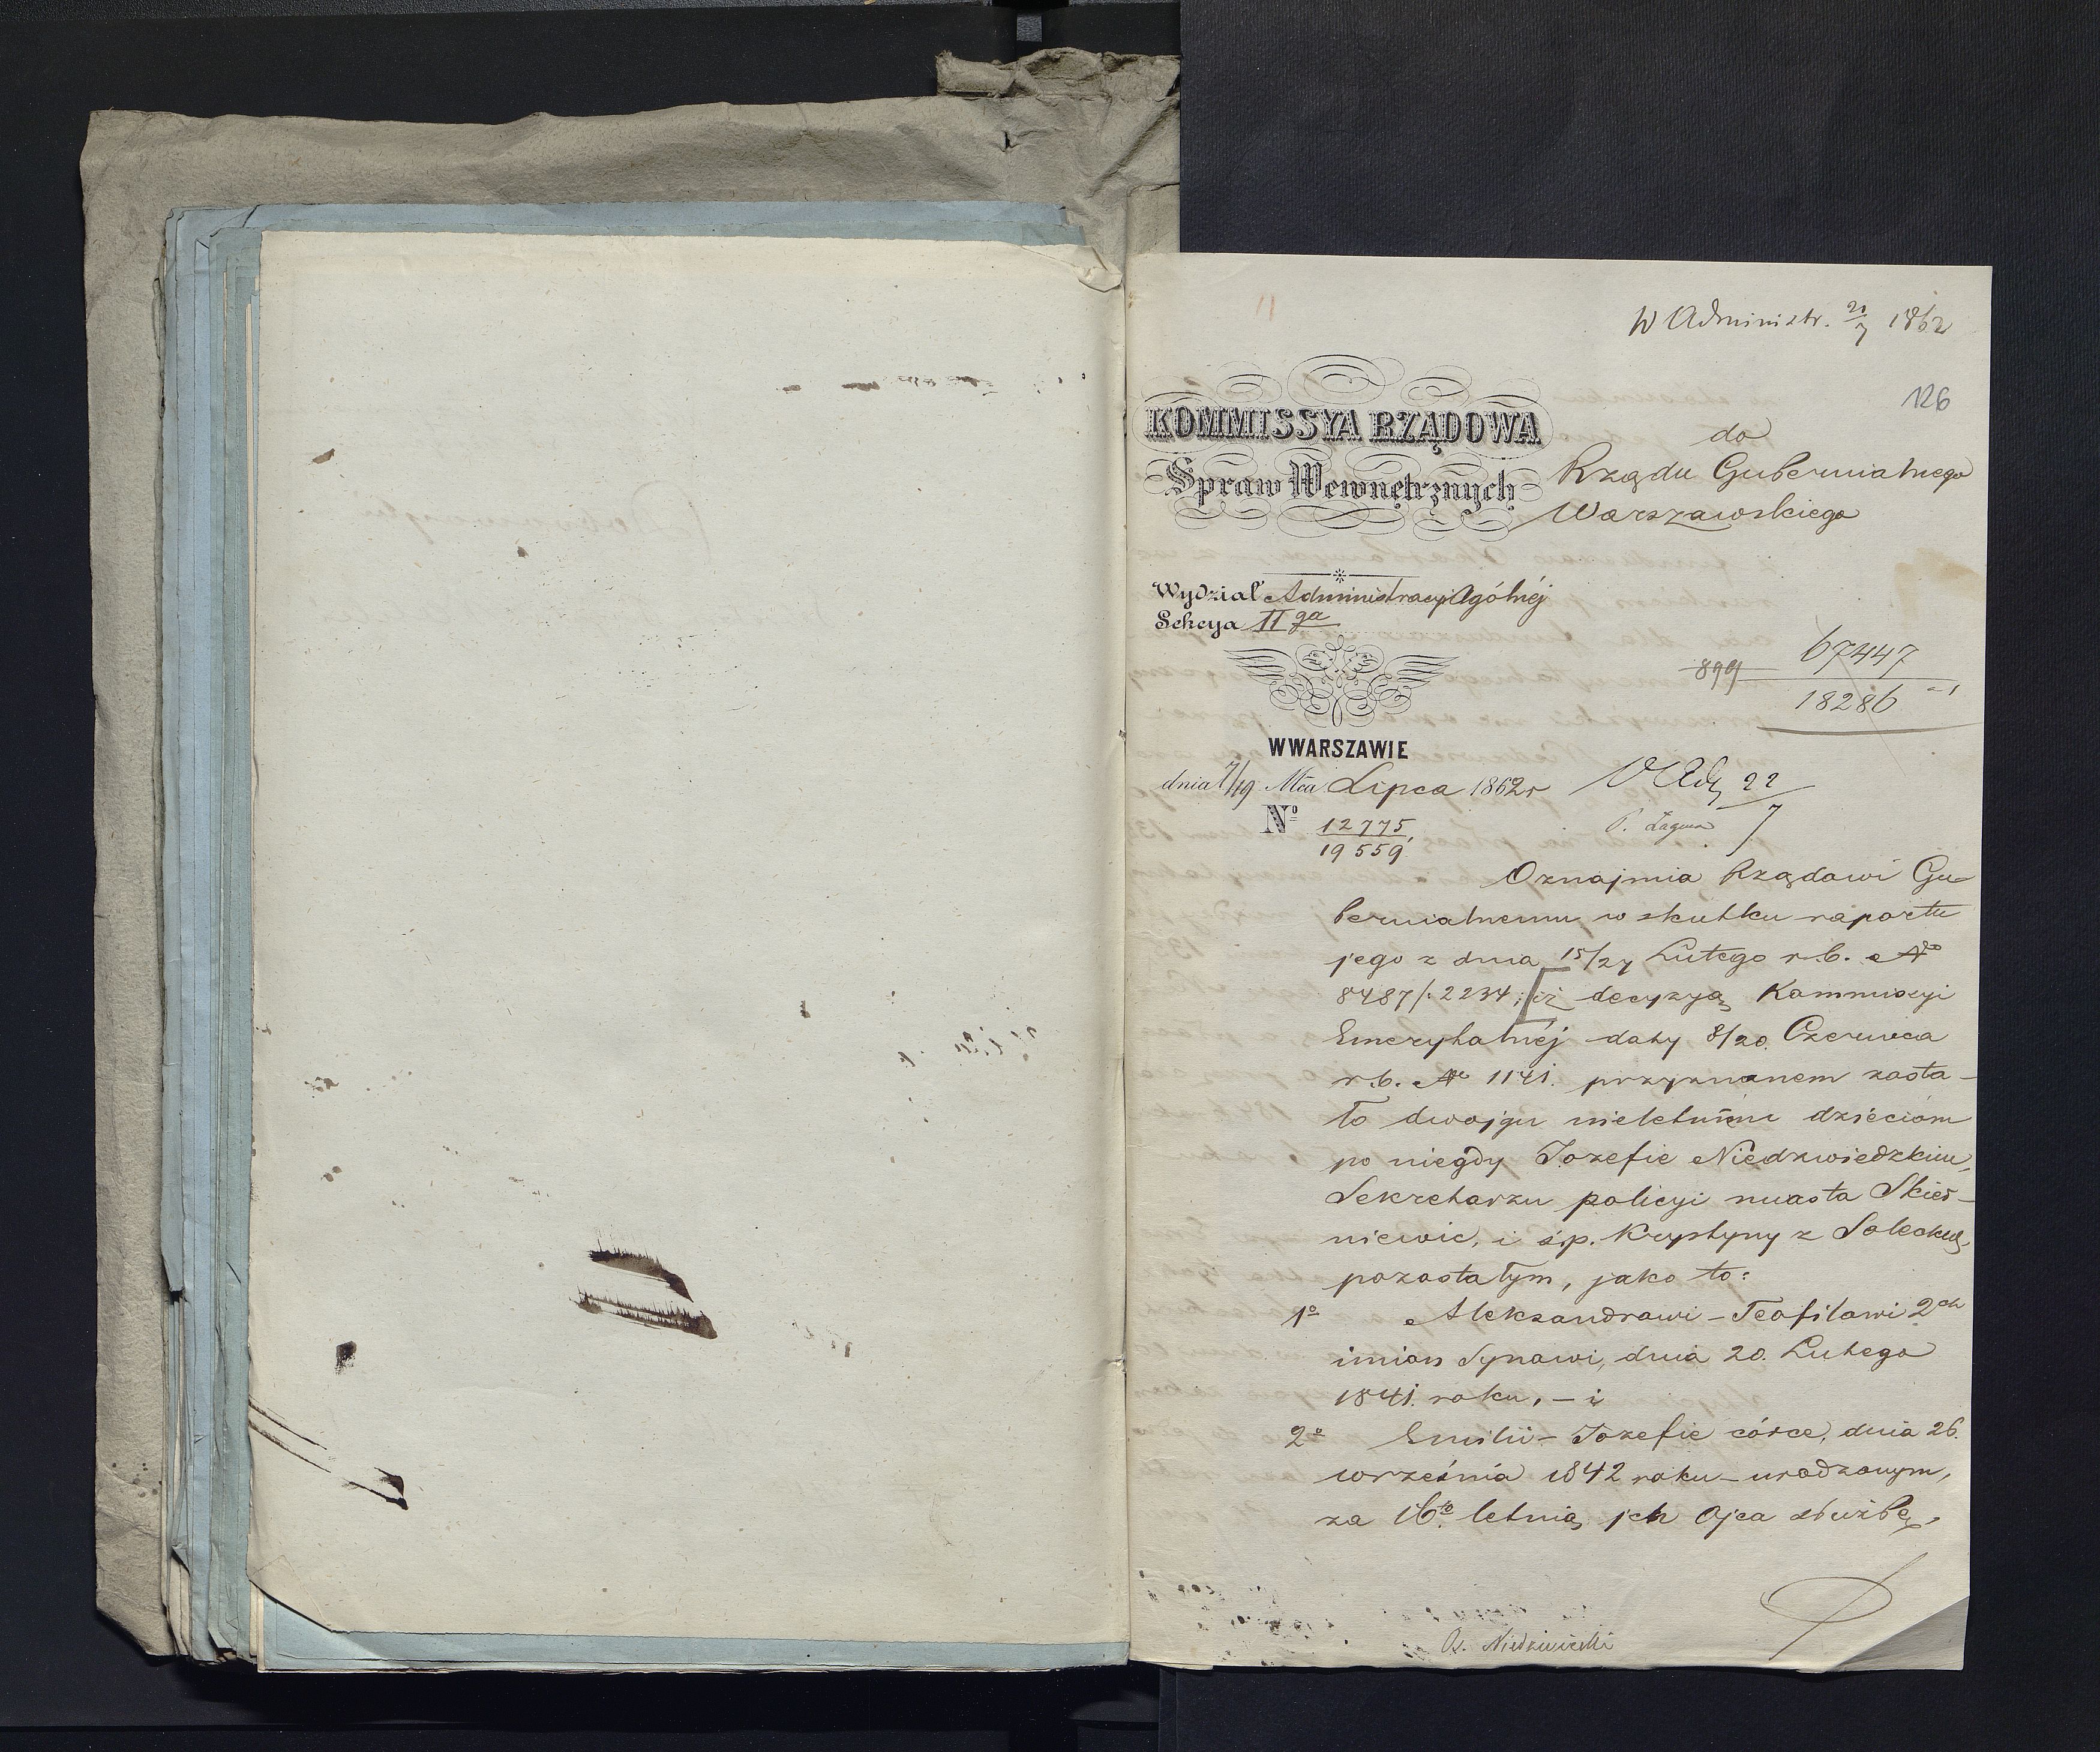 W Administr. 21/7 1862
126
KOMMISSYA RZĄDOWA
Spraw Wewnętrznych
do
Rządu Gubernialnego
Warszawskiego
Wydział Administracyi Ogólnéj
Sekcya II ga
67447
899
18286
W WARSZAWIE
dnia 7/19 Mca Lipca 1862 r
22/7
P. Zagwa
No 12775/19559
Oznajmia Rządowi Gu-
bernialnemu w skutku raportu
jego z dnia 15/27 Lutego r. b. No
8487/:2234, iż decyzyą Kommissyi
Emerytalnéj daty 8/20 Czerwca
r. b. No 1141. przyznanem zosta-
ło dwojgu nieletnim dzieciom
po niegdy Józefie Niedzwiedzkim,
Sekretarzu policyi miasta Skier-
niewic, i ś.p. Krystyny z Soleckich,
pozostałym, jako to:
1o Aleksandrowi-Teofilowi 2ch
imion Synowi, dnia 20. Lutego
1841. roku, – i
2o Emilii-Józefie córce, dnia 26.
września 1842 roku – urodzonym,
za 16to letnią ich Ojca służbę,
Niedzwiedzki